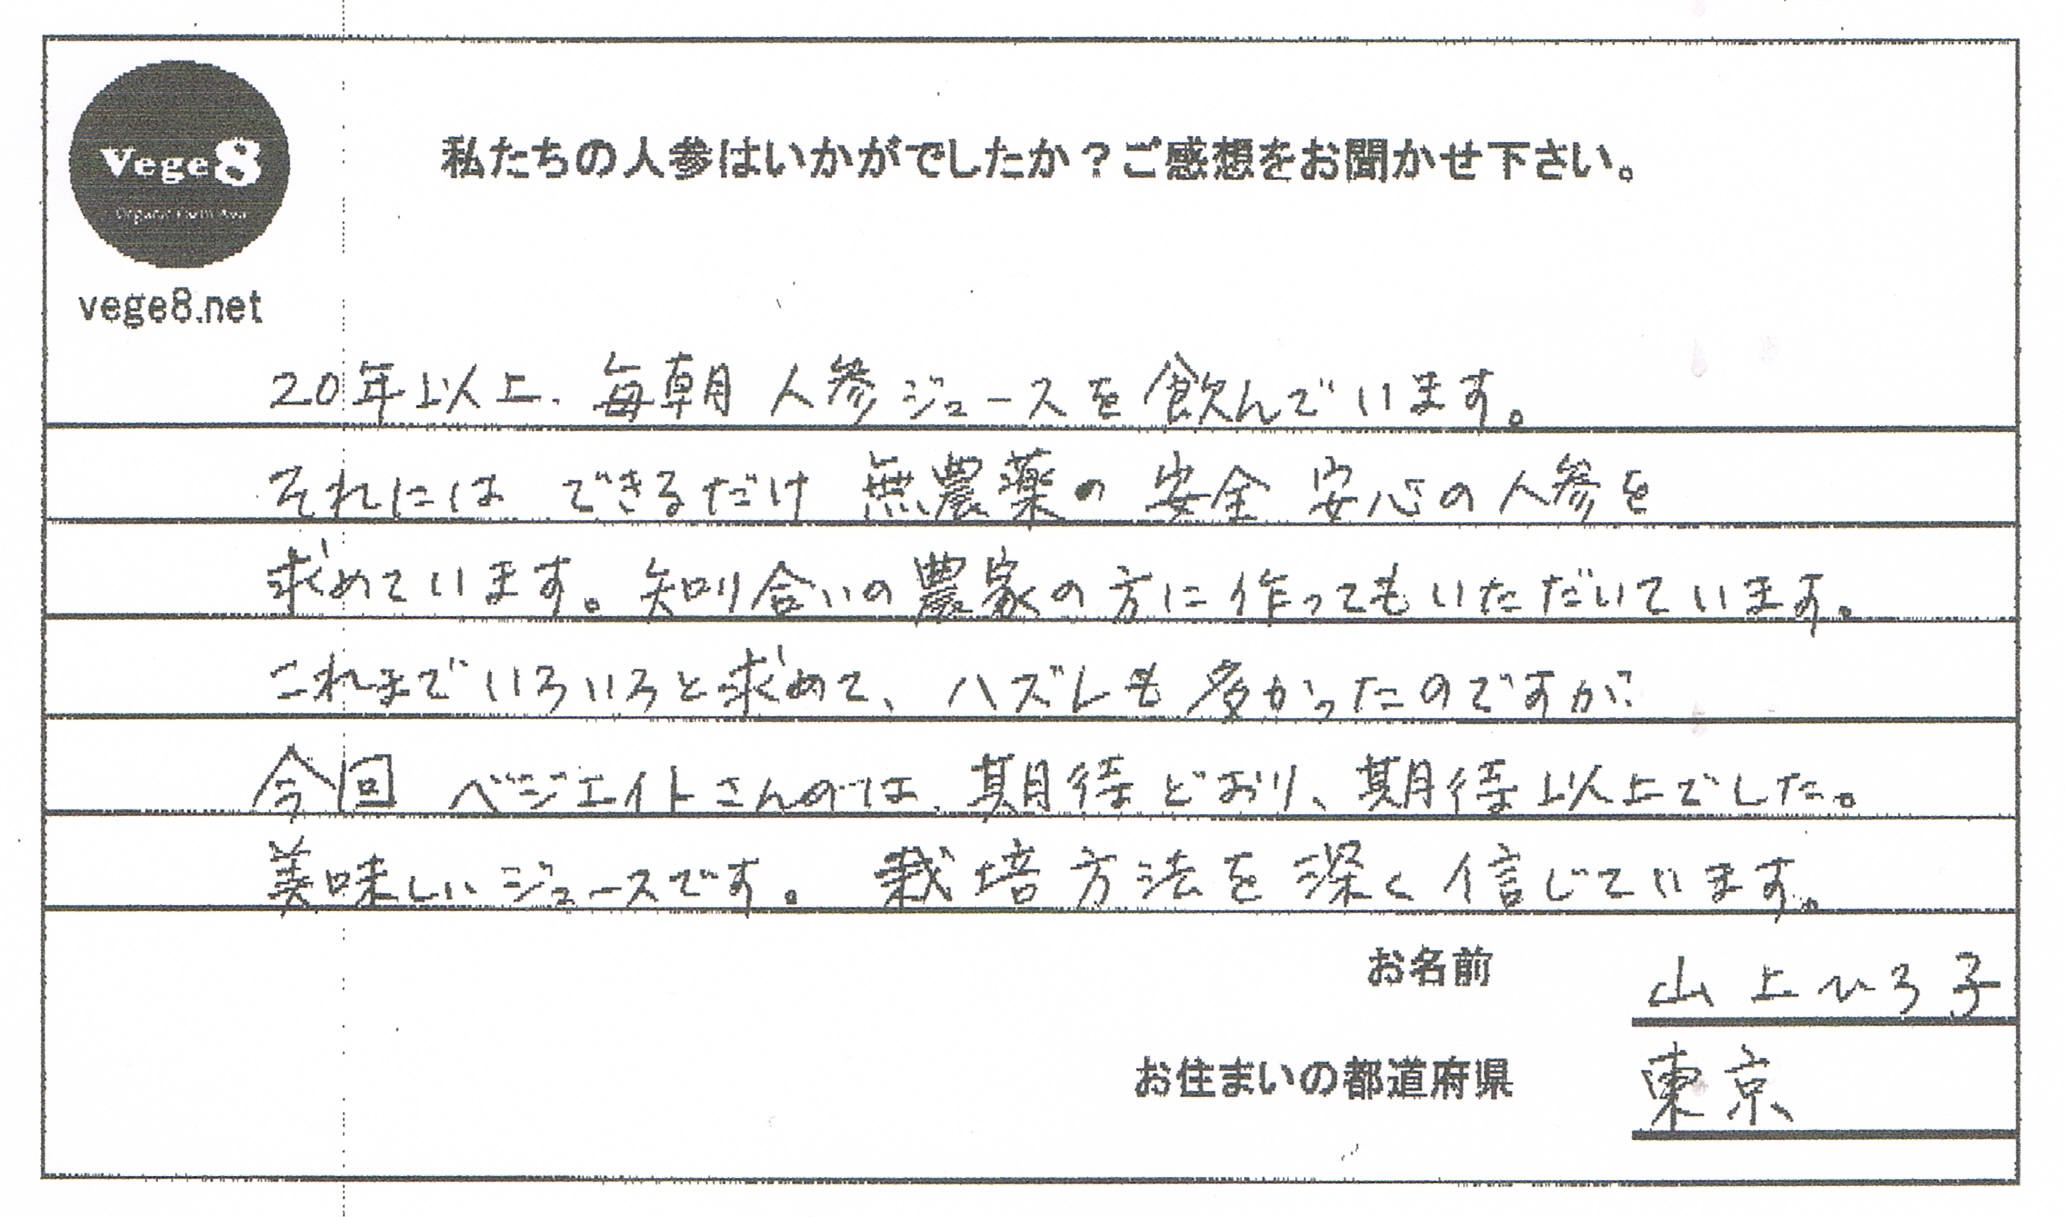 Vege8
Organic Farm Awa
vege8.net
私たちの人参はいかがでしたか？ご感想をお聞かせ下さい。
20年以上、毎朝 人参ジュースを飲んでいます。
それには できるだけ 無農薬の 安全 安心の人参を
求めています。知り合いの農家の方に作ってもいただいています。
これまでいろいろと求めて、ハズレも多かったのですが
今回 ベジエイトさんのは、期待どおり、期待以上でした。
美味しいジュースです。 栽培方法を深く信じています。
お名前 山上ひろ子
お住まいの都道府県 東京